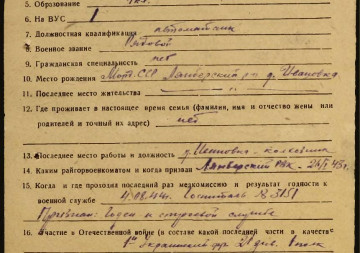 5. Образование 4 кл.
6. На ВУС 1
7. Должностная квалификация автоматчик
8. Военное звание Рядовой
9. Гражданская специальность нет
10. Место рождения Морд. ССР д. Ивановка
11. Последнее место жительства
12. Где проживает в настоящее время семья (фамилия, имя и отчество жены или
родителей и точный их адрес) нет
13. Последнее место работы и должность д. колхозник
14. Каким райгорвоенкоматом и когда призван РВК
15. Когда и где проходил последний раз медкомиссию и результат годности к
военной службе 4.08.44г. Госпиталь № 5151
Признан: Годен к строевой службе
16. Участие в Отечественной войне (в составе какой последней части в качеств
1й украинский фр. 21 див. 1 полк